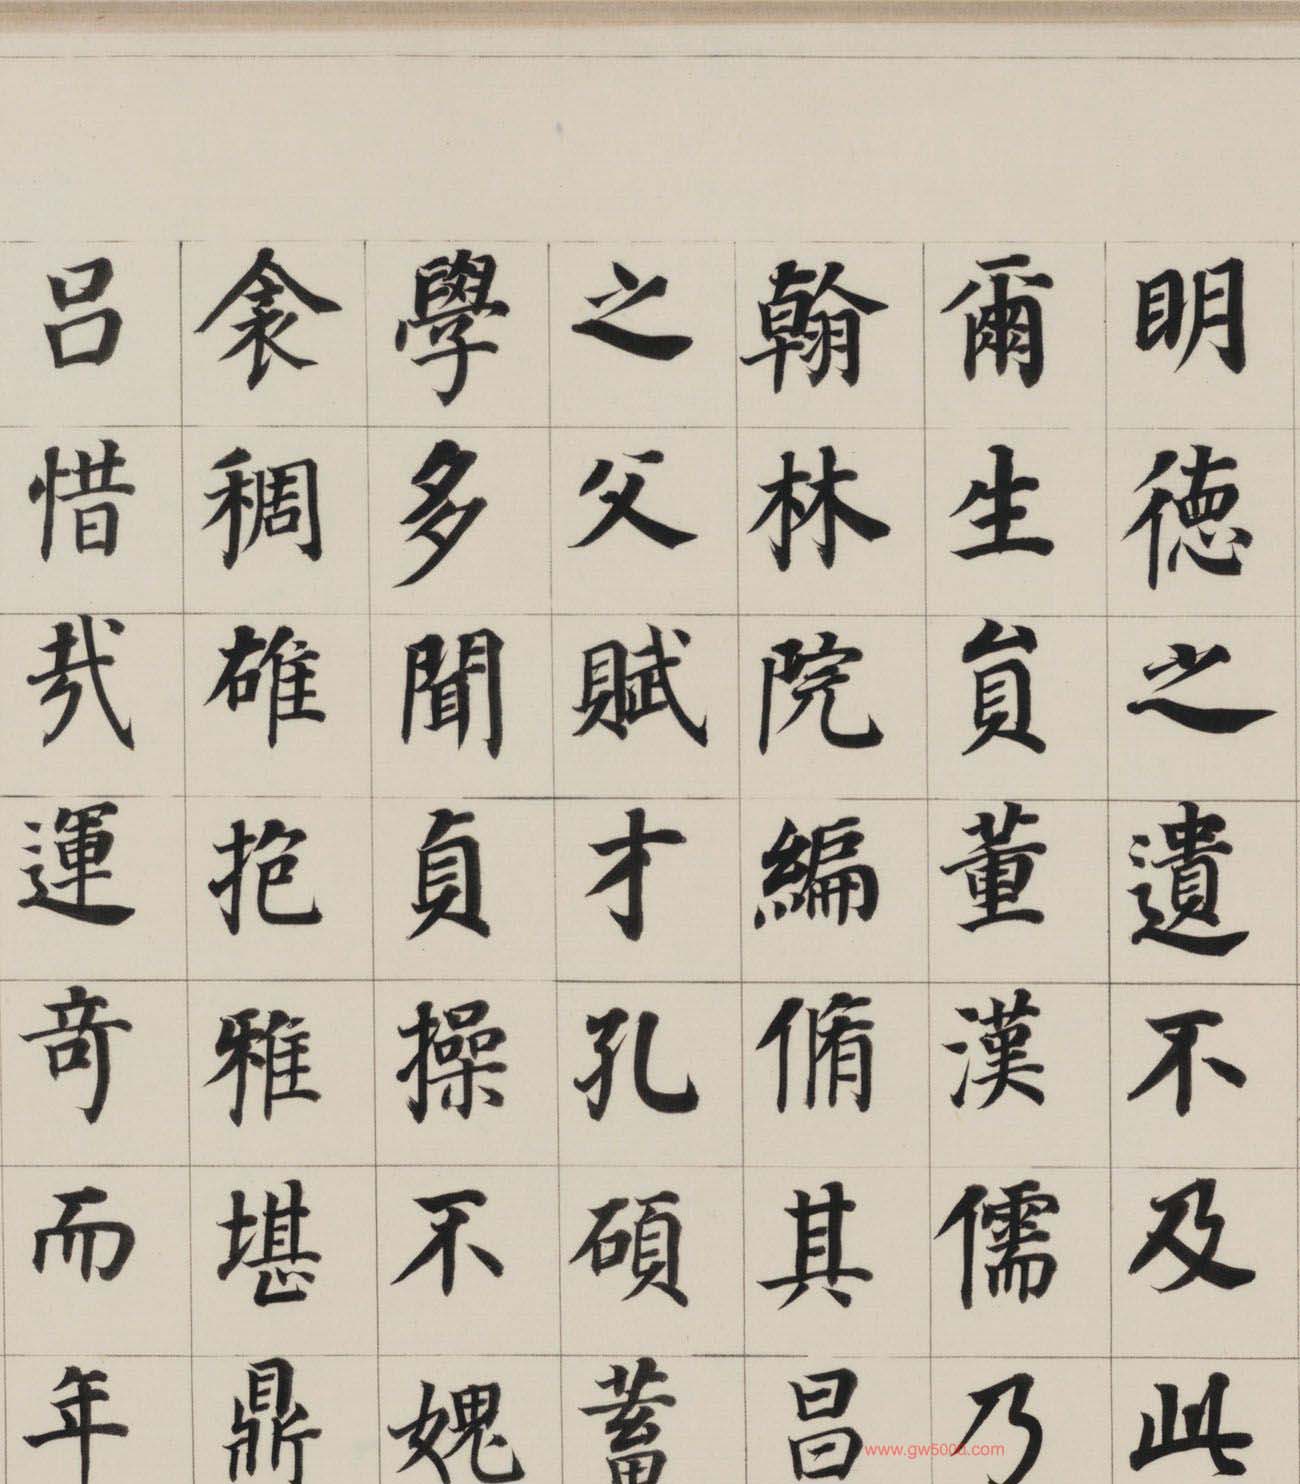 明德之遺不及此
爾生員董漢儒乃
翰林院編脩其昌
之父賦才孔碩蓄
學多聞貞操不媿
衾稠雄抱雅堪鼎
吕惜㦲運竒而年
www.gw5000.com